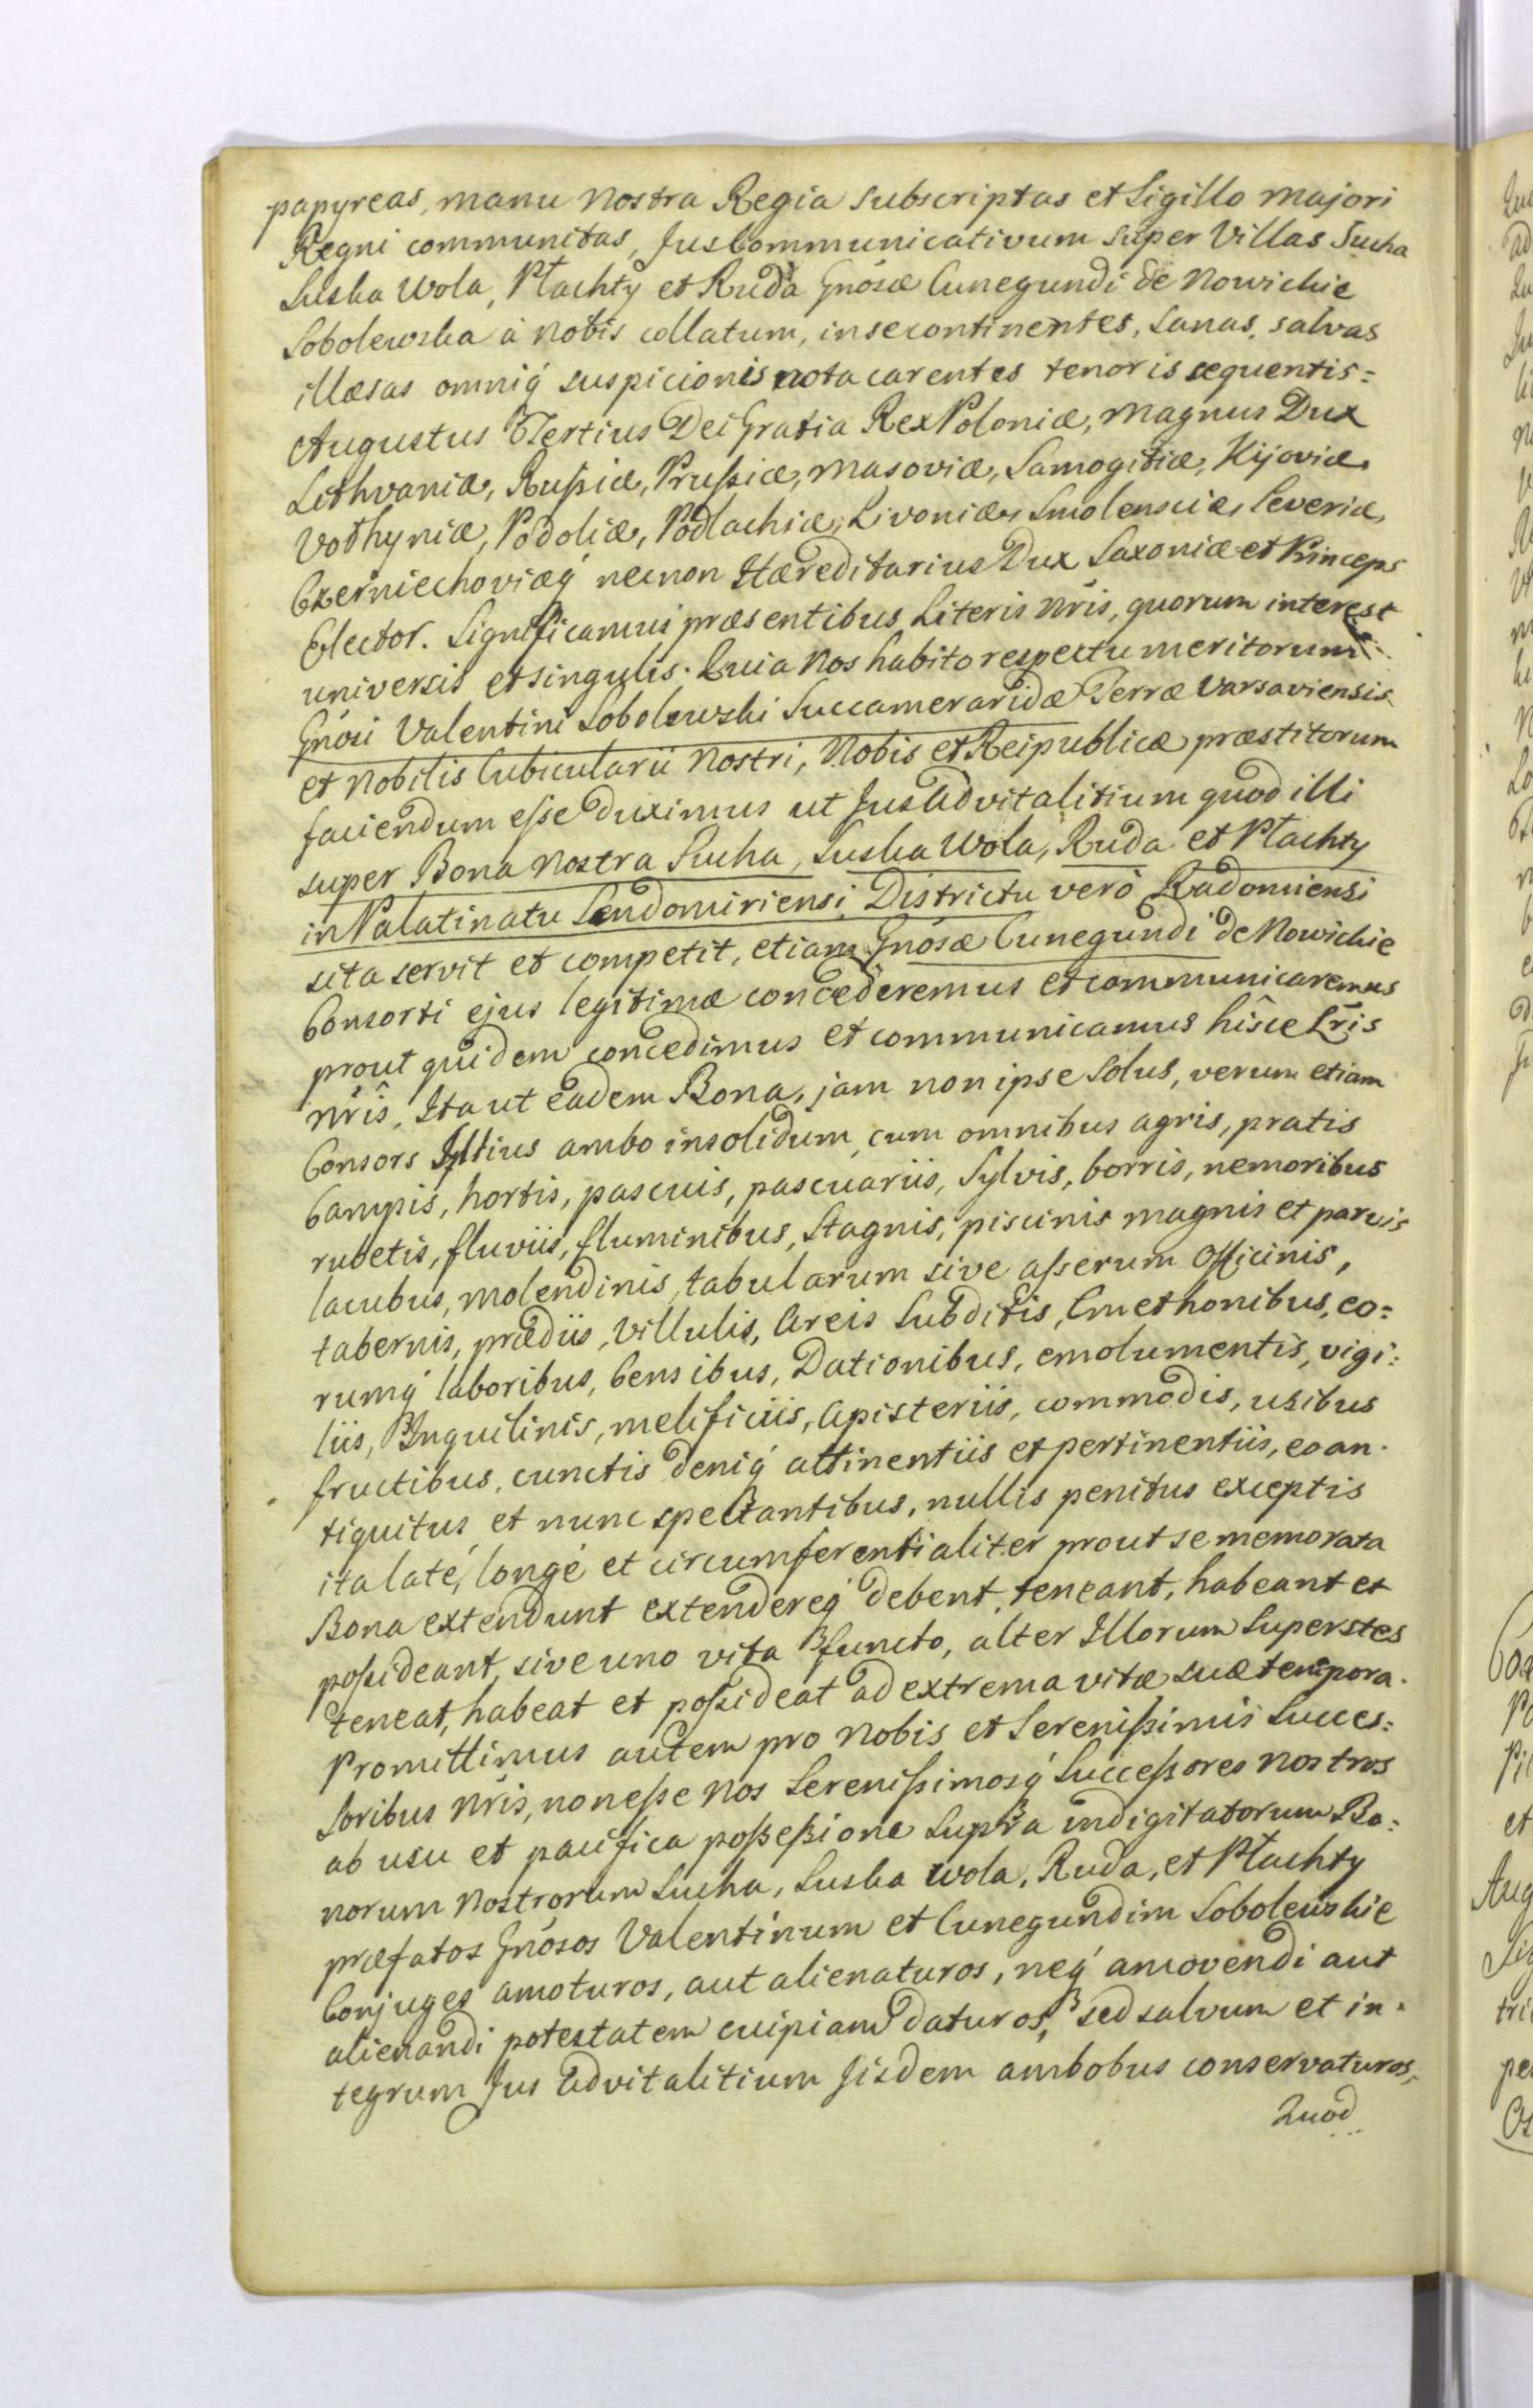 papyreas, manu nostra Regia subscriptas et Sigillo majori
Regni communitas, Jus Communicativum super Villas Sucha
Suska Wola, Płachty et Ruda Gnósæ Cunegundi de Nowickie
Sobolewska à nobis collatum, in se continentes, sanas, salvas
illæsas omniq́ suspicionis nota carentes tenoris sequentis:
Augustus Tertius Dei Gratia Rex Poloniæ, Magnus Dux
Lithvaniæ, Rußiæ, Prußiæ, Masoviæ, Samogitiæ, Kijoviæ,
Vołhyniæ, Podoliæ, Podlachiæ, Livoniæ, Smolensciæ, Severiæ,
Czerniechoviæq́ necnon Hæreditarius Dux Saxoniæ et Princeps
Elector. Significamus præsentibus Literis Nris, quorum interest
universis et singulis. Quia Nos habito respectu meritorum
Gnósi Valentini Sobolewski Succameraridæ Terræ Varsaviensis
et Nobilis Cubicularii Nostri, Nobis et Reipublicæ præstitorum
faciendum eße duximus ut Jus Advitalitium quod illi
super Bona Nostra Sucha, Suska Wola, Ruda et Płachty
in Palatinatu Sendomiriensi Districtu verò Radomiensi
sita servit et competit, etiam Gnósæ Cunegundi de Nowickie
Consorti ejus legitimæ concederemus et communicaremus
prout quidem concedimus et communicamus hisce Lris
Nris, Ita ut eadem Bona, jam non ipse solus, verum etiam
Consors Illius ambo insolidum, cum omnibus agris, pratis
Campis, hortis, pascuis, pascuariis, Sylvis, borris, nemoribus
rubetis, fluviis, fluminibus, Stagnis, piscinis magnis et parvis
lacubus, molendinis, tabularum sive aßerum Officinis,
tabernis, prædiis, Villulis, Areis Subditis, Cmethonibus, eo:
rumq́ laboribus, Censibus, Dationibus, emolumentis, vigi:
liis, Inquilinis, melificiis, Apisteriis, commodis, usibus
fructibus, cunctis deniq́ attinentiis et pertinentiis, eo an.
tiquitus et nunc spectantibus, nullis penitus exceptis
ita latè, longè et circumferentialiter prout se memorata
Bona extendunt extendereq́ debent, teneant, habeant et
poßideant, sive uno vita functo, alter Illorum Superstes
teneat, habeat et poßideat ad extrema vitæ suæ tempora.
Promittimus autem pro Nobis et Serenißimis Succes:
soribus Nris, non eße Nos Serenißimosq́ Succeßores nostros
ab usu et pacifica poßeßione supra indigitatorum Bo:
norum Nostrorum Sucha, Suska Wola, Ruda, et Płachty
præfatos Gnósos Valentinum et Cunegundim Sobolewskie
Conjuges amoturos, aut alienaturos, neq́ amovendi aut
alienandi potestatem cuipiam daturos, sed salvum et in.
tegrum Jus Advitalitium Jisdem ambobus conservaturos,
Quod